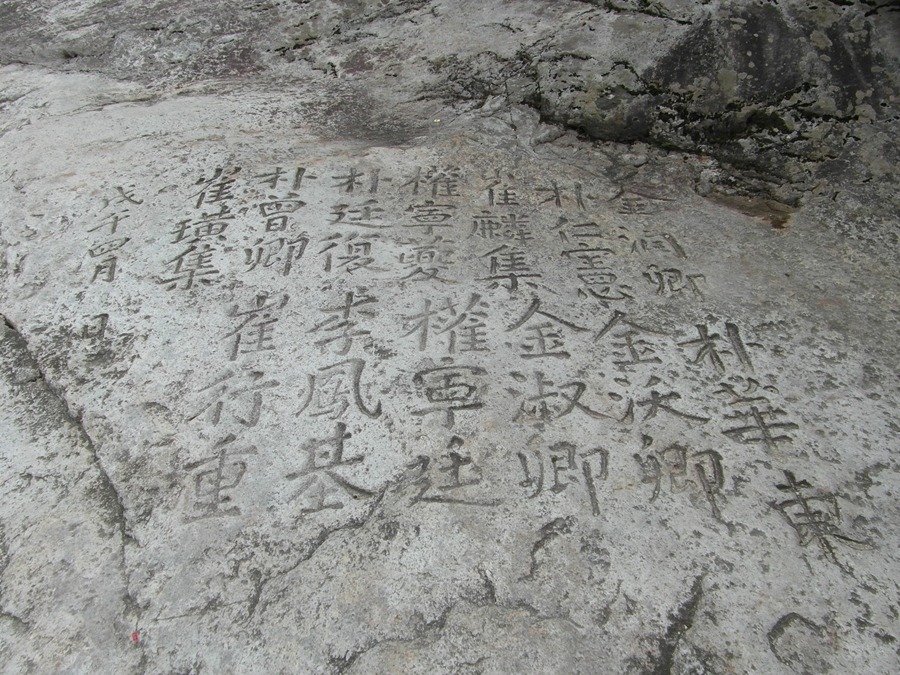 朴華東
金洞卿
金沃卿
朴仁憲
金淑卿
崔麟集
權寧夔
權寧廷
朴廷復
李鳳基
朴曾卿
崔行重
崔璜集
戊午四月 日